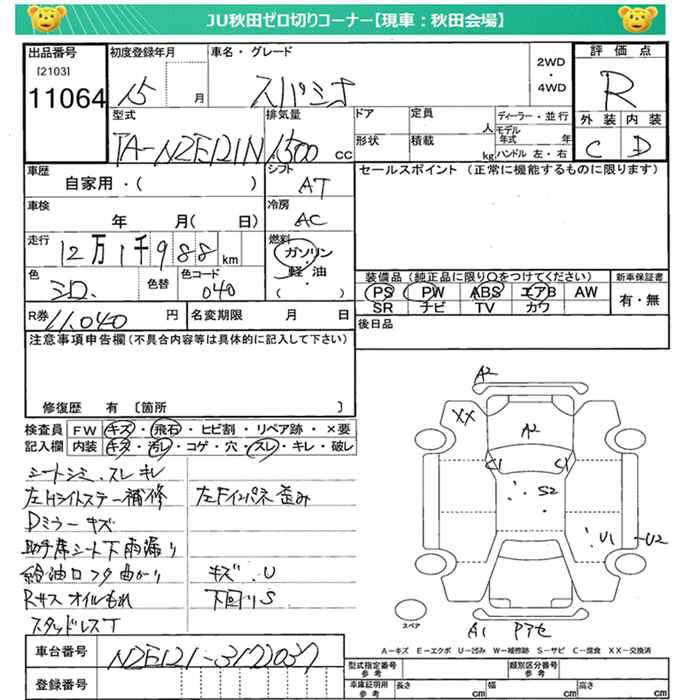 JU秋田ゼロ切りコーナー【現車：秋田会場】
出品番号 初度登録年月 車名・グレード 2WD・4WD 評価点
[2103]
11064 15 月 スパシオ R
型式 排気量 ドア 定員 人 ディーラー・並行 外装 内装
TA-NZE121N 1500 cc 形状 積載 kg モデル年式 年 ハンドル 左・右 C D
車歴 シフト セールスポイント (正常に機能するものに限ります)
自家用・( ) AT
車検 冷房
年 月( 日) AC
走行 燃料
12万1千988 km ガソリン・軽油
色 色替 色コード ( )
シロ 040
装備品 (純正品に限り○をつけてください) 新車保証書
PS PW ABS エアB AW 有・無
SR ナビ TV カワ
R券 11,040 円 名変期限 月 日 後日品
注意事項申告欄(不具合内容等は具体的に記入して下さい)
修復歴 有 [箇所 ]
検査員 FW キズ・飛石・ヒビ割・リペア跡・×要
記入欄 内装 キズ・汚レ・コゲ・穴・スレ・キレ・破レ
シートシミ、スレ キレ
左Hライトステー補修 左Fインパネ歪み
Dミラーキズ
助手席シート下雨漏り
給油口フタ曲がり キズ.U
Rサス オイルもれ 下回りS
スタッドレスT
A2
XX
A2
C1 C1
S2
U1 U2
A1 Pアセ
スペア
A－キズ E－エクボ U－凹み W－補修跡 S－サビ C－腐食 XX－交換済
車台番号 NZE121-3172037
登録番号
型式指定番号 参考 類別区分番号 参考
車庫証明用 参考 長さ cm 幅 cm 高さ cm